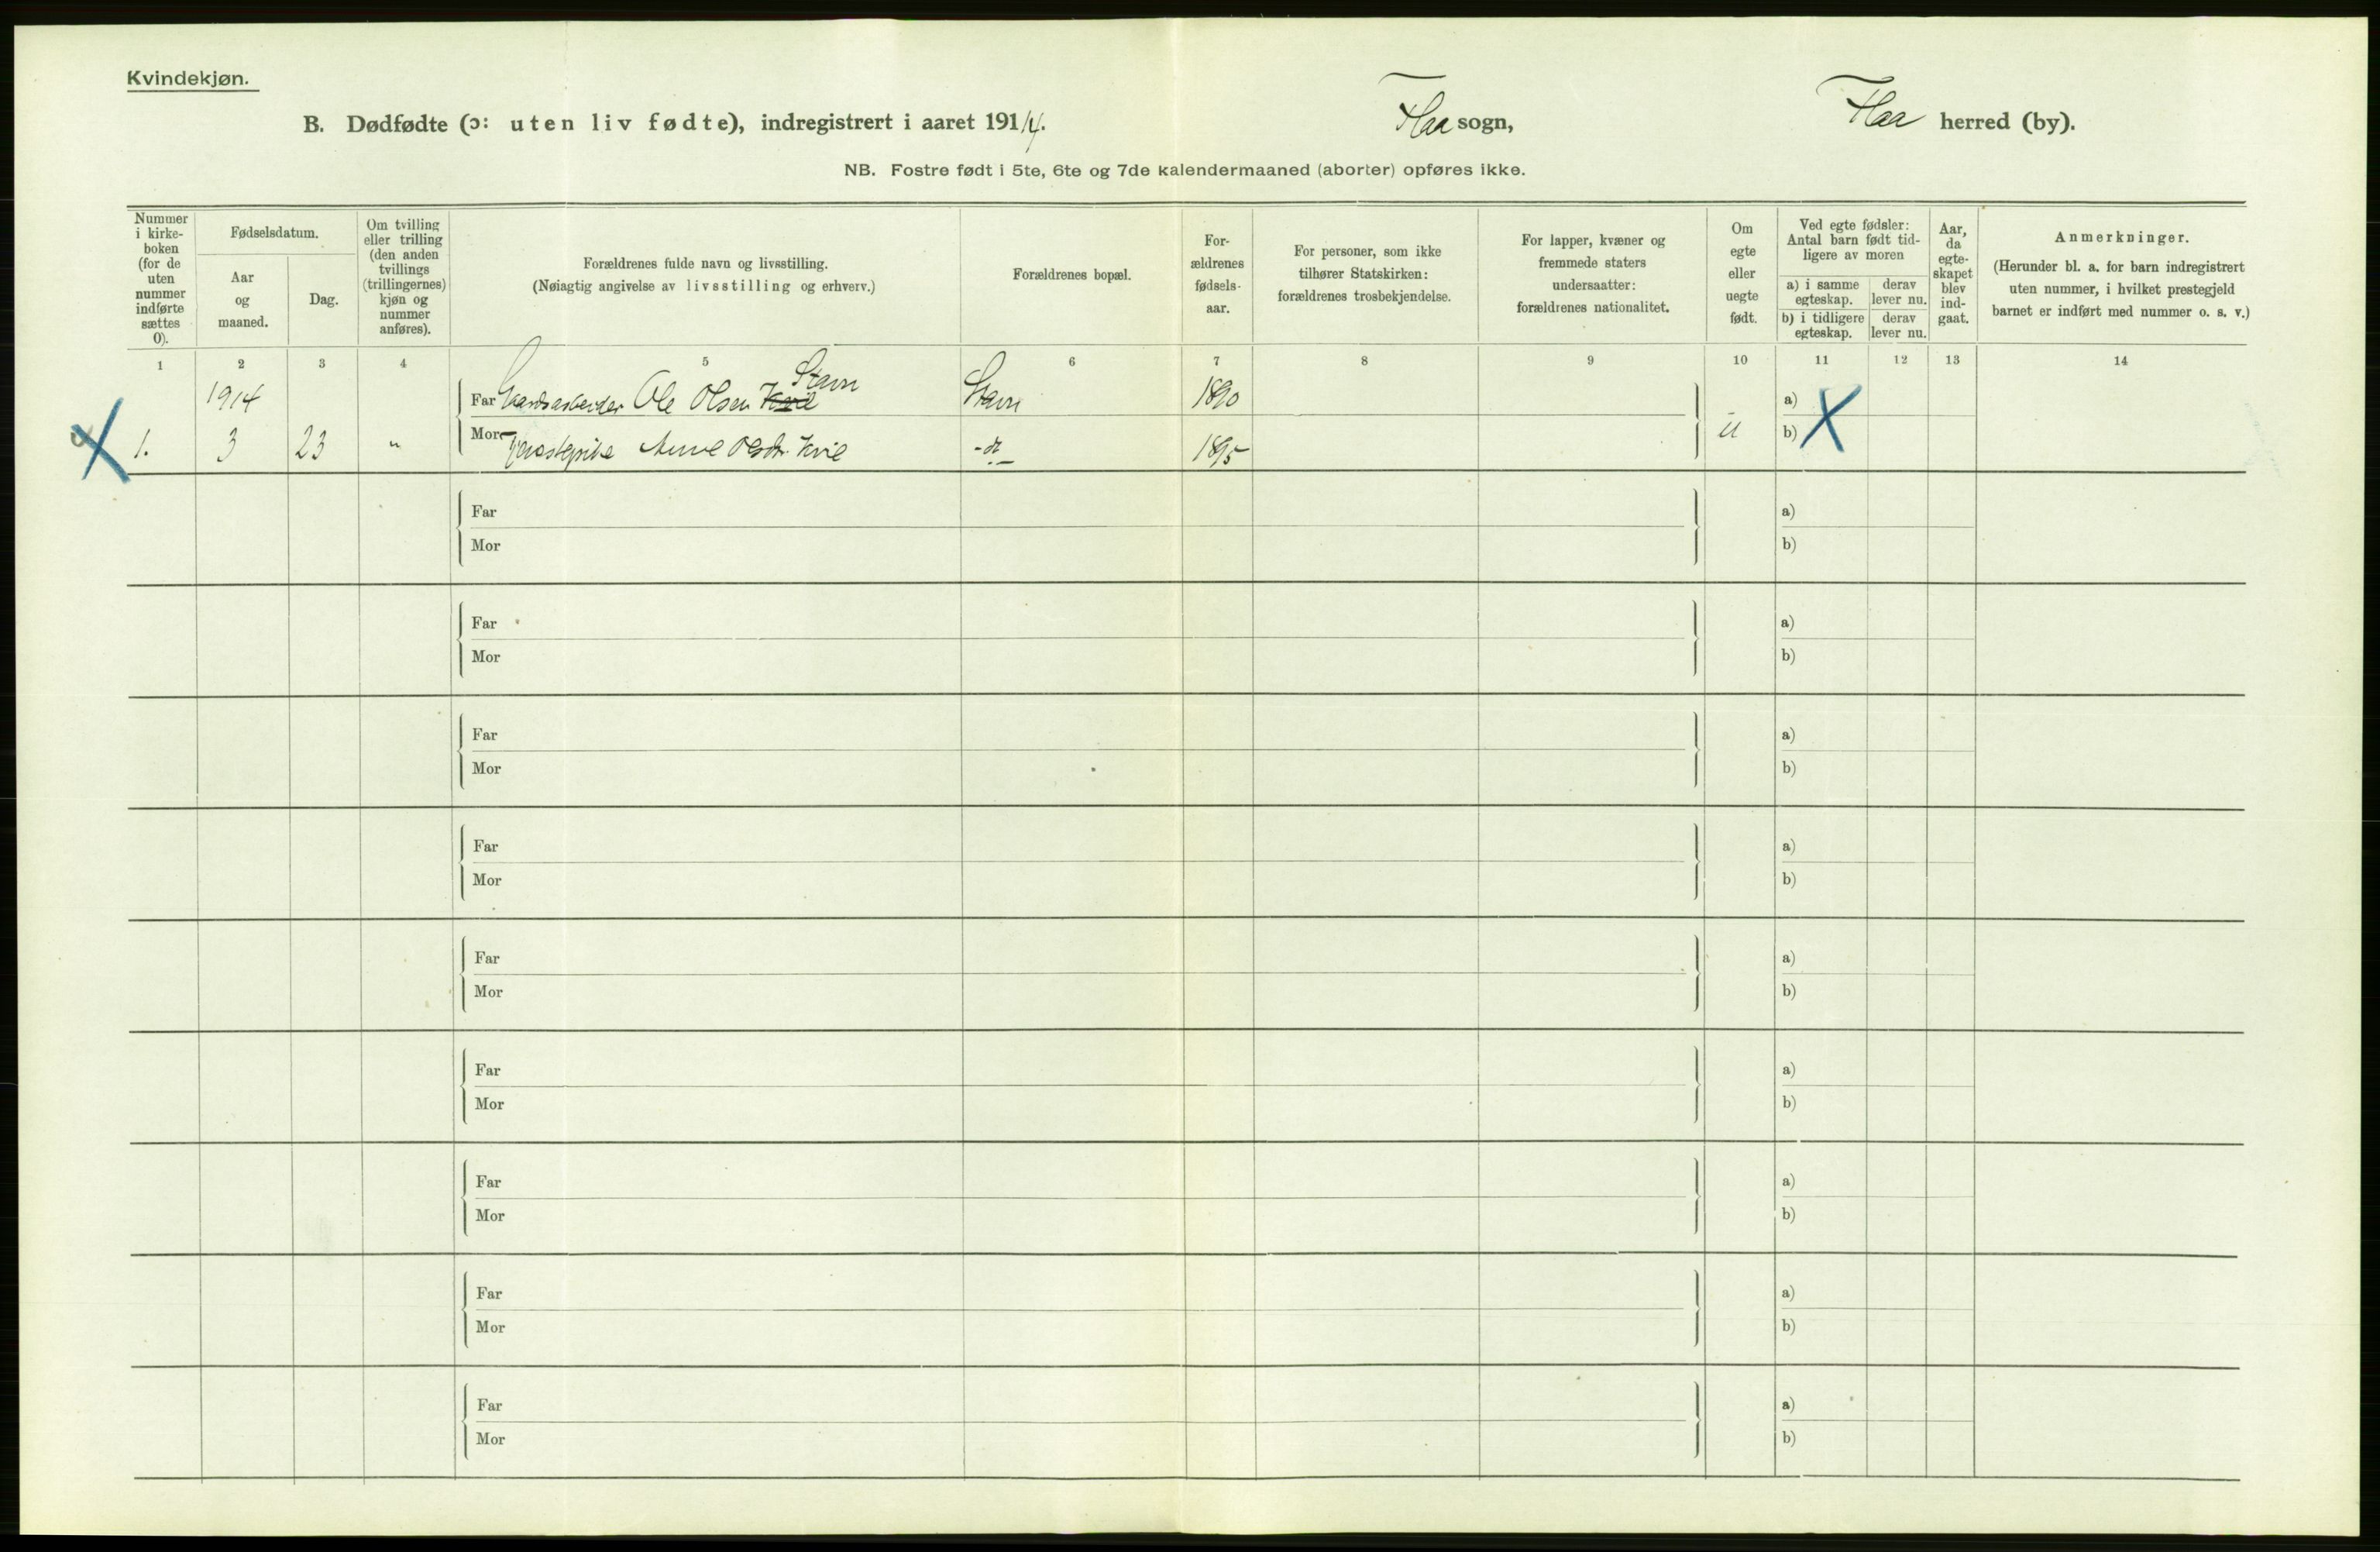 Kvindekjøn.
B. Dødfødte (ɔ: uten liv fødte), indregistrert i aaret 1914.
Flaa sogn,
Flaa herred (by).
NB. Fostre født i 5te, 6te og 7de kalendermaaned (aborter) opføres ikke.
Nummer
i kirke-
boken
(for de
uten
nummer
indførte
sættes
0).
Fødselsdatum.
Aar
og
maaned.
Dag.
Om tvilling
eller trilling
(den anden
tvillings
(trillingernes)
kjøn og
nummer
anføres).
Forældrenes fulde navn og livsstilling.
(Nøiagtig angivelse av livsstilling og erhverv.)
Forældrenes bopæl.
For-
ældrenes
fødsels-
aar.
For personer, som ikke
tilhører Statskirken:
forældrenes trosbekjendelse.
For lapper, kvæner og
fremmede staters
undersaatter:
forældrenes nationalitet.
Om
egte
eller
uegte
født.
Ved egte fødsler:
Antal barn født tid-
ligere av moren
a) i samme
egteskap.
derav
lever nu.
b) i tidligere
egteskap.
derav
lever nu.
Aar,
da
egte-
skapet
blev
ind-
gaat.
Anmerkninger.
(Herunder bl. a. for barn indregistrert
uten nummer, i hvilket prestegjeld
barnet er indført med nummer o. s. v.)
1 2 3 4 5 6 7 8 9 10 11 12 13 14
Stavn
1914 Far Gaardsarbeider Ole Olsen Kvie Stavn 1890 a)
1. 3 23 " Mor Olsdtr. Kvie -d- 1895 u b)
Far a)
Mor b)
Far a)
Mor b)
Far a)
Mor b)
Far a)
Mor b)
Far a)
Mor b)
Far a)
Mor b)
Far a)
Mor b)
Far a)
Mor b)
Far a)
Mor b)